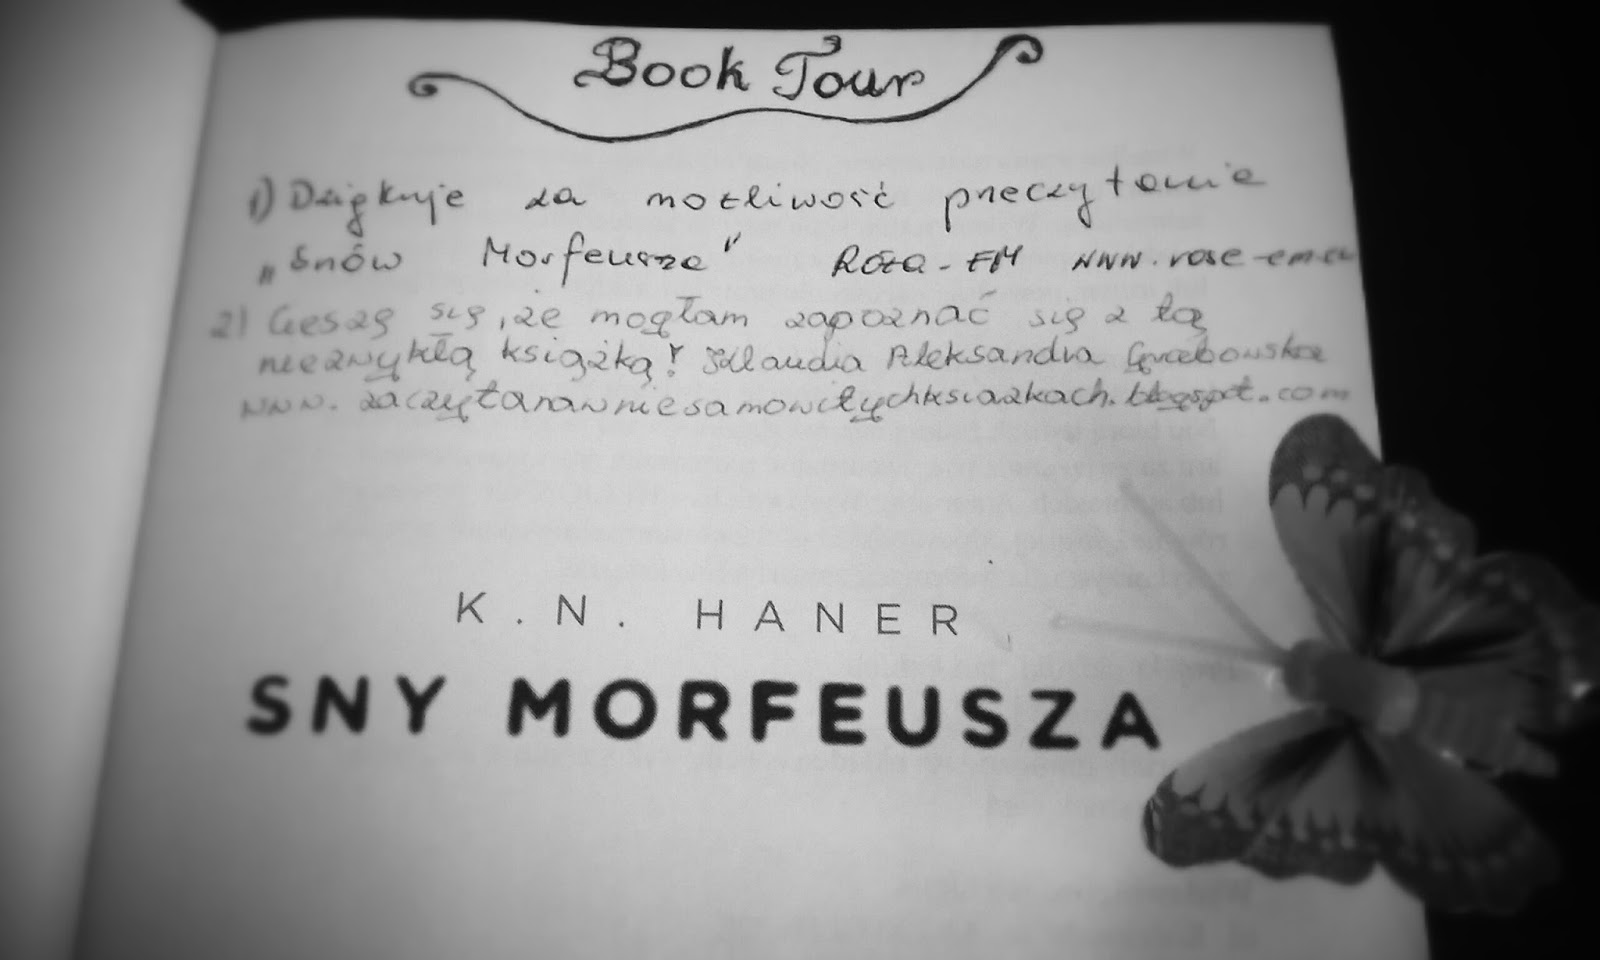 Book Tour
1) Dziękuję za możliwość przeczytania
„Snów Morfeusza" Róża-EM www.rose-em
2) Cieszę się, że mogłam zapoznać się z tą
niezwykłą książką! Klaudia Aleksandra Grabowska
www.zaczytanawniesamowitychksiazkach.blogspot.com
K. N. HANER
SNY MORFEUSZA